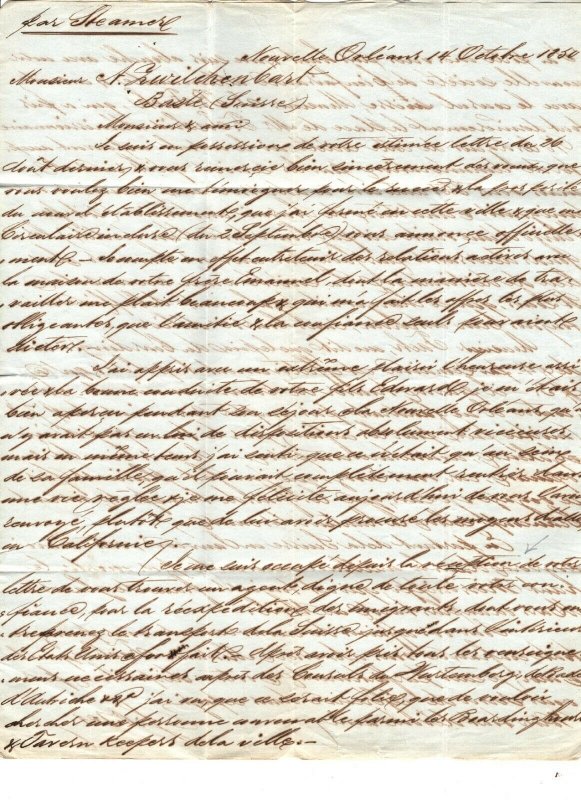 par Steamer
Nouvelle Orléans 14 Octobre 185
Monsieur A. Zwilchenbart
Basle (Suisse)
Monsieur & ami
Je suis en possession de votre estimée lettre du 26
dernier, & vous remercie bien sincèrement des vœux que
vous voulez bien par le succès & la prospérité
du nouvel établissement, que j'ai formé en cette ville & que ma
Circulaire incluse (du 2 Septembre) vous annonce officielle
ment. Je compte en effet entretenir des relations actives avec
la maison de votre fils Emanuel, dont la manière de tra
vailler me plait beaucoup & qui m'a fait les offres les plus
obligeantes, que l'amitié & la confiance seules puissent
dicter.
J'ai appris avec un extrême plaisir l'heureuse
la bonne conduite de votre fils Eduard, je m'étais
bien aperçu pendant son séjour à la Nouvelle Orléans, qu'
il n'y avait pas en lui de dispositions &
mais j'ai senti que ce n'était qu'au sein
de sa famille, qu'il
& je me félicite aujourd'hui de vous l'avoir
renvoyé, plutôt que de lui avoir procuré les moyens d'aller
en Californie.
Je me suis occupé depuis la réception de votre
lettre de vous trouver un agent, digne de toute votre con
fiance, pour la réexpédition des émigrants dont vous en
treprenez le transport de la Suisse jusque dans l'intérieur
des Etats Unis. Après avoir pris tous les renseigne
mens nécessaires auprès des Consuls de Wurtemberg, de Bade
d'Autriche &c j'ai vu, que ce serait
chercher une personne convenable parmi les Boarding house
& Tavern Keepers de la ville.—